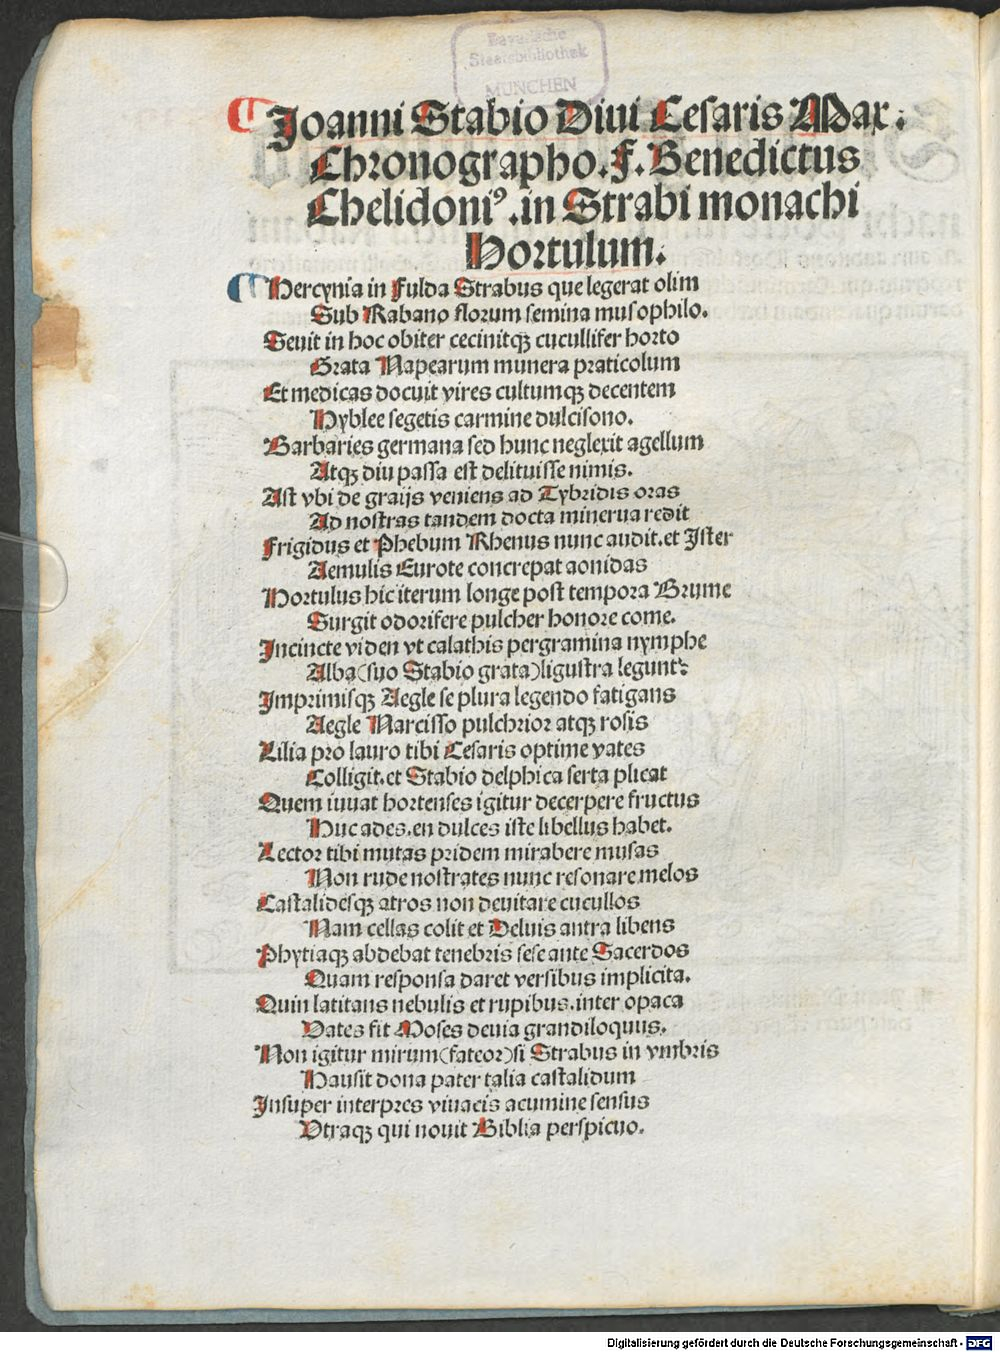 Bayerische
Staatsbibliothek
MÜNCHEN
Joanni Stabio Diui Cesaris Max:
Chronographo. F. Benedictus
Chelidoniꝰ. in Strabi monachi
Hortulum:
Hercynia in Fulda Strabus que legerat olim
Sub Rabano florum semina musophilo.
Seuit in hoc obiter cecinitqꝫ cucullifer horto
Grata Napearum munera praticolum
Et medicas docuit vires cultumqꝫ decentem
Hyblee segetis carmine dulcisono.
Barbaries germana sed hunc neglexit agellum
Atqꝫ diu passa est delituisse nimis.
Ast vbi de graijs veniens ad Tybridis oras
Ad nostras tandem docta minerua redit
Frigidus et Phebum Rhenus nunc audit. et Ister
Aemulis Eurote concrepat aonidas
Hortulus hic iterum longe post tempora Brume
Surgit odorifere pulcher honore come.
Incincte viden vt calathis pergramina nymphe
Alba (suo Stabio grata) ligustra legunt:
Imprimisqꝫ Aegle se plura legendo fatigans
Aegle Narcisso pulchrior atqꝫ rosis
Lilia pro lauro tibi Cesaris optime vates
Colligit. et Stabio delphica serta plicat
Quem iuuat hortenses igitur decerpere fructus
Huc ades. en dulces iste libellus habet.
Lector tibi mutas pridem mirabere musas
Non rude nostrates nunc resonare melos
Castalidesqꝫ atros non deuitare cucullos
Nam cellas colit et Deluis antra libens
Phytiaqꝫ abdebat tenebris sese ante Sacerdos
Quam responsa daret versibus implicita.
Quin latitans nebulis et rupibus. inter opaca
Vates fit Moses deuia grandiloquus.
Non igitur mirum (fateor) si Strabus in vmbris
Hausit dona pater talia castalidum
Insuper interpres viuacis acumine sensus
Vtraqꝫ qui nouit Biblia perspicuo.
Digitalisierung gefördert durch die Deutsche Forschungsgemeinschaft - DFG